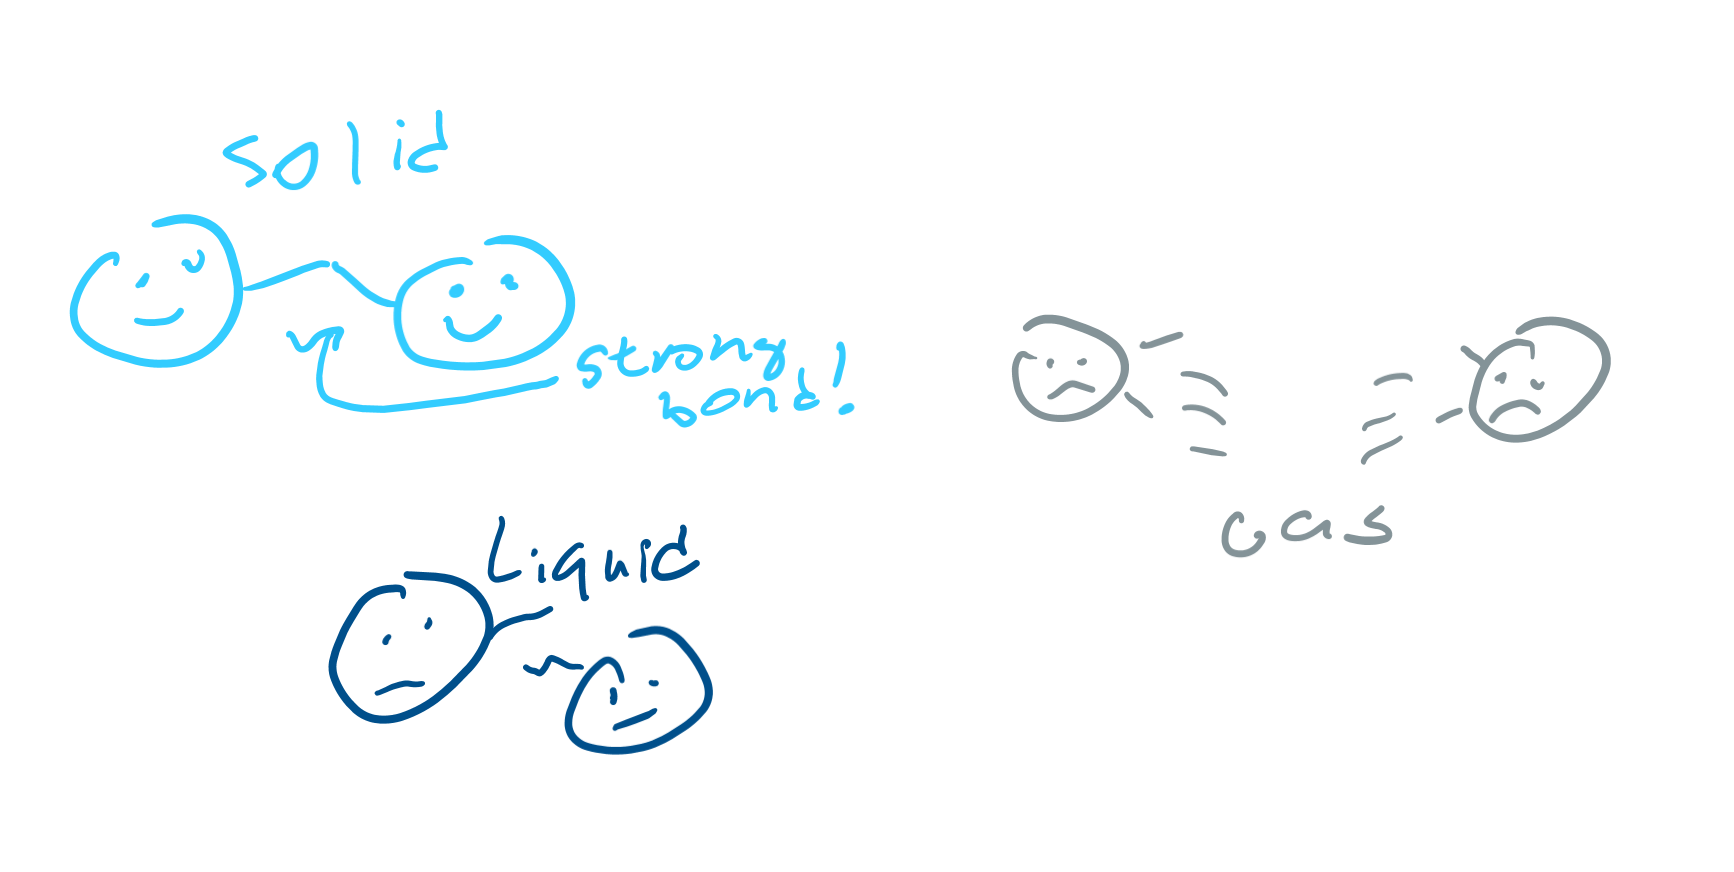 solid
strong
bond!
Liquid
Gas